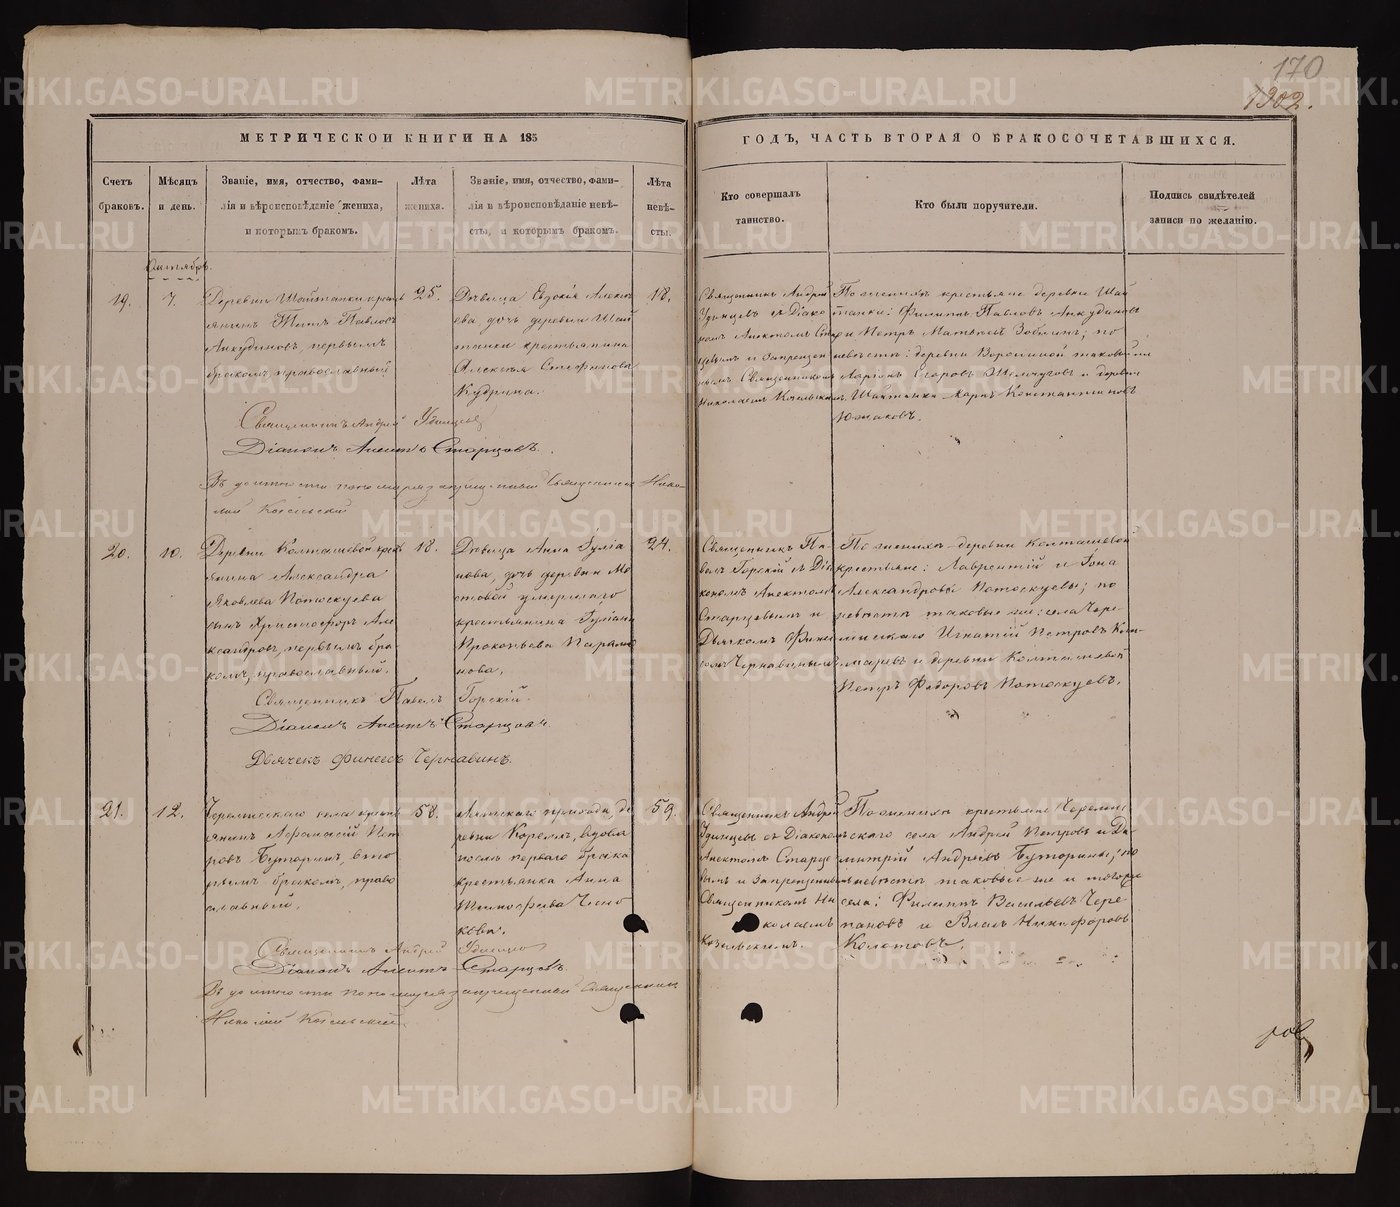 170
1302.
МЕТРИЧЕСКОЙ КНИГИ НА 185
ГОДЪ, ЧАСТЬ ВТОРАЯ О БРАКОСОЧЕТАВШИХСЯ.
Счетъ браковъ.
Мѣсяцъ и день.
Званіе, имя, отчество, фами-
лія и вѣроисповѣданіе жениха,
и которымъ бракомъ.
Лѣта жениха.
Званіе, имя, отчество, фами-
лія и вѣроисповѣданіе невѣ-
сты, и которымъ бракомъ.
Лѣта невѣ-
сты.
Кто совершалъ
таинство.
Кто были поручители.
Подпись свидѣтелей
записи по желанію.
Октябрь.
19.
7.
Деревни Шайтанки кресть
янинъ Титъ Павловъ
Анкудиновъ, первымъ
бракомъ, православный
25.
Дѣвица Евдокія Алексѣ
ева, дочь деревни Шай
танки крестьянина
Алексѣя Стефанова
Кудрина.
18.
Священникъ Андрей
Удинцевъ съ Діако
номъ Алектомъ Стар
цевымъ и запрещен
нымъ Священникомъ
Николаемъ
По женихѣ крестьяне деревни Шай
танки: Филиппъ Павловъ Анкудиновъ
и Петръ Матвѣевъ Зобнинъ; по
невѣстѣ: деревни
Ларіонъ Егоровъ Жемчуговъ и деревни
Шайтанки Марко Константиновъ
Южаковъ.
Священникъ Андрей Удинцевъ
Діаконъ Алектъ Старцовъ.
запрещенный Священникъ Нико
лай
20.
10.
Деревни Колташевой крест
янина Александра
Яковлева Потоскуева
сынъ Христофоръ Але
ксандровъ, первымъ бра
комъ, православный.
18.
Дѣвица Анна Іуліа
нова, дочь деревни Мо
стовой умершаго
крестьянина Іуліана
Прокопьева Парамо
нова.
24.
Священникъ Па
велъ Горскій съ Діа
кономъ Алектомъ
Старцевымъ и
Дьячкомъ Финее
сомъ Чернавинымъ
По женихѣ деревни Колташевой
крестьяне: Лаврентій и Іона
Александровы Потоскуевы; по
невѣстѣ таковые же: села Чере-
мисскаго Игнатій Петровъ
и деревни Колташевой
Петръ Федоровъ Потоскуевъ.
Священникъ Павелъ Горскій.
Діаконъ Алектъ Старцовъ.
Дьячекъ Финеесъ Чернавинъ.
21.
12.
Черемисскаго села кресть
янинъ Афанасій Пет
ровъ Буторинъ, вто
рымъ бракомъ, право
славный.
58.
прихода де
ревни вдова
послѣ перваго брака
крестьянка Анна
Тимофеева Чесно
кова.
59.
Священникъ Андрей
Удинцевъ съ Діакономъ
Алектомъ Старце
вымъ и запрещеннымъ
Священникомъ Ни
колаемъ
По женихѣ крестьяне Черемис
скаго села Андрей Петровъ и Ди
митрій Андреевъ Буторины; по
невѣстѣ таковые же и тогоже
села: Филиппъ Васильевъ Чере
пановъ и Власъ Никифоровъ
Священникъ Андрей Удинцовъ
Діаконъ Алектъ Старцовъ.
запрещенный Священникъ
Николай
METRIKI.GASO-URAL.RU